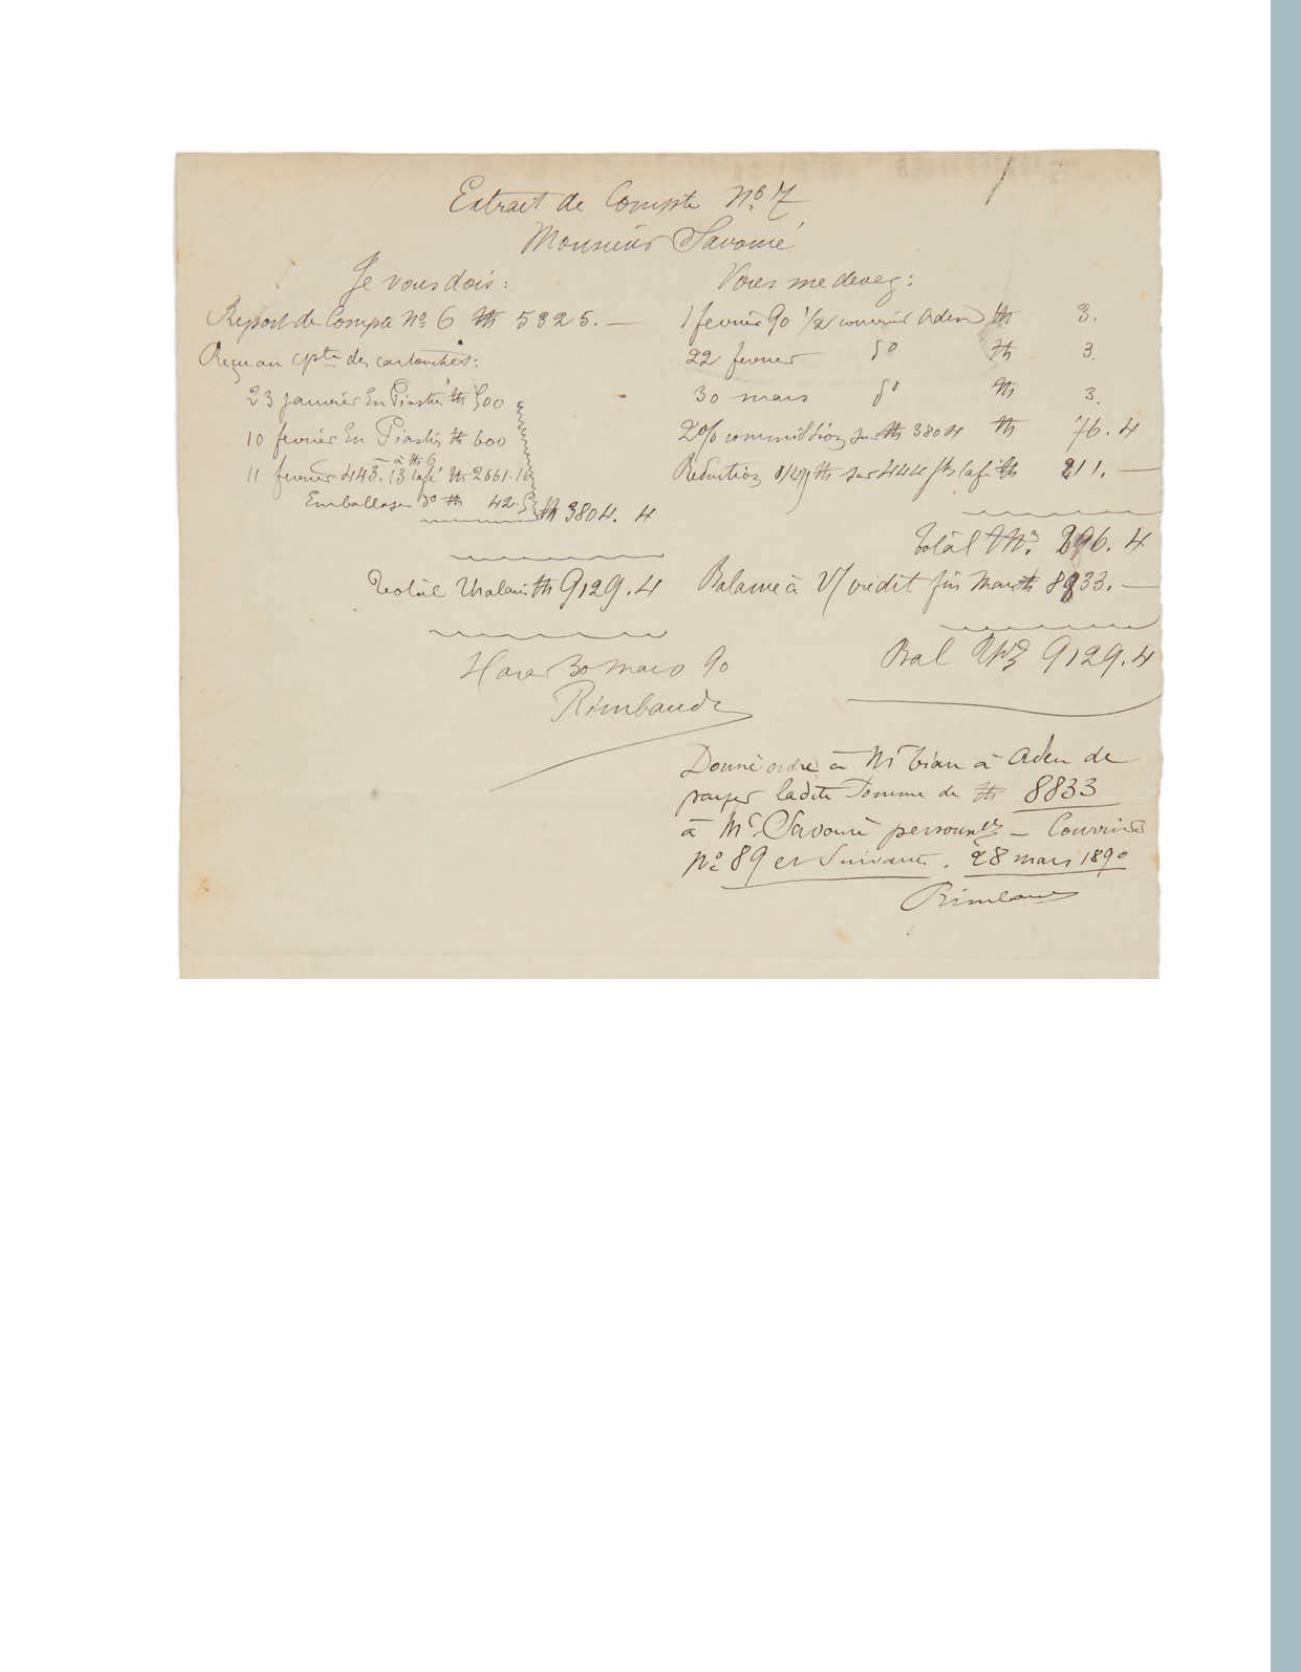 Extrait de Compte No. 7
Monsieur Savouré
Je vous dois :
Report de Compte No. 6 th 5325. —
Reçu au cpte des cartouches :
23 janvier En Piastres th 500
10 fevrier En Piastres th 600
à th 6
11 fevrier 443.13 café th 2661.16
Emballage do th 42.
th 3804. 4
Total Thalaris th 9129.4
Harar 30 mars 90
Rimbaud
Vous me devez :
1 fevrier 90 1/2 courrier Aden th 3.
22 fevrier do th 3.
30 mars do th 3.
2% commission sur th 3804 th 76.4
Réduction th sur 444 café th 211. —
Total Ths. 296. 4
Balance à V/ crédit fin Mars th 8833. —
Bal Ths 9129.4
Donné ordre à Mr Tian à Aden de
payer ladite Somme de th 8833
à Mr. Savouré — Courrier
No. 89 et Suivants. 28 mars 1890
Rimbaud